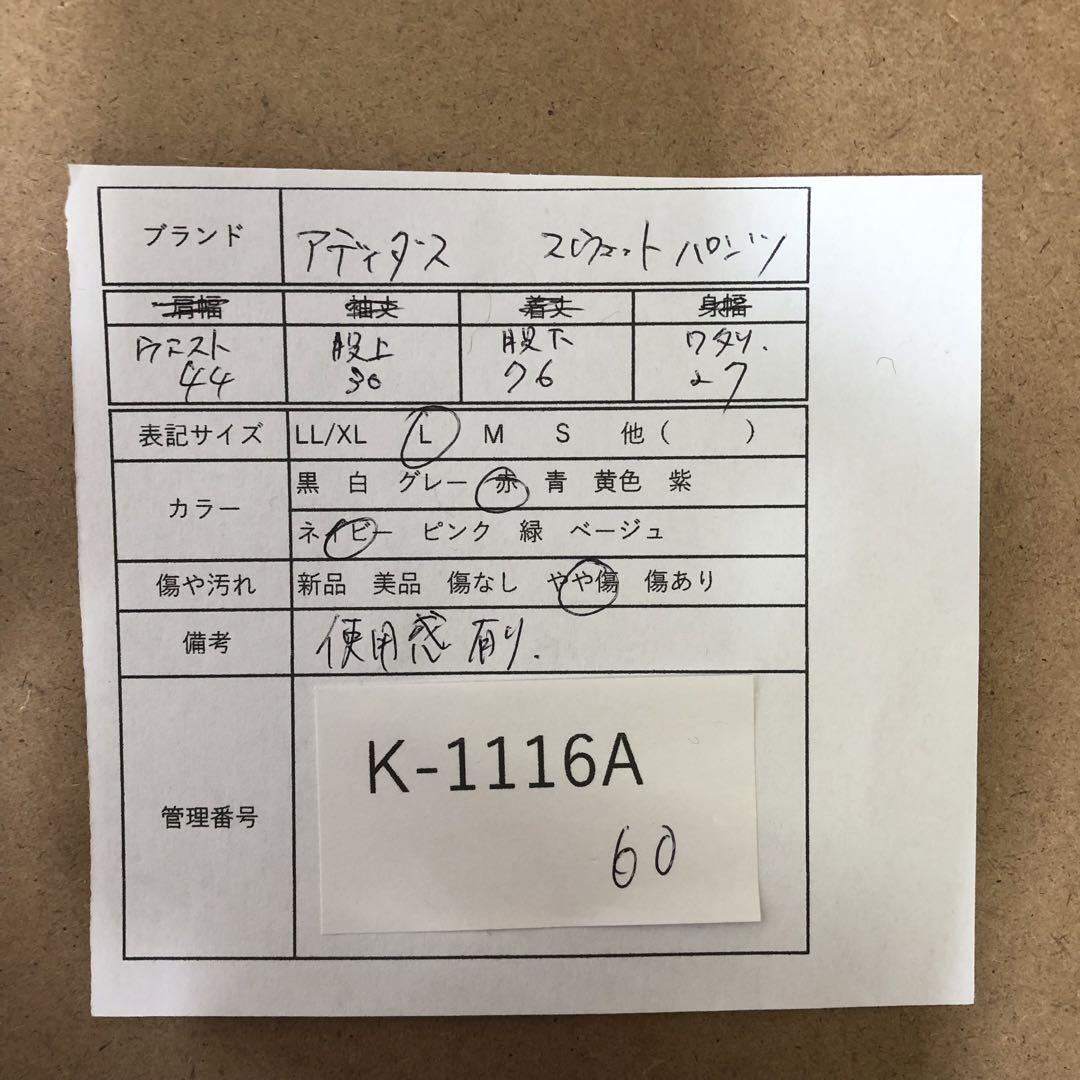 ブランド アディダス スウェットパンツ
肩幅 袖丈 着丈 身幅
ウエスト 股上 股下 ワタリ.
44 30 76 27
表記サイズ LL/XL L M S 他 ( )
カラー 黒 白 グレー 赤 青 黄色 紫
ネイビー ピンク 緑 ベージュ
傷や汚れ 新品 美品 傷なし やや傷 傷あり
備考 使用感有り.
管理番号 K-1116A
60